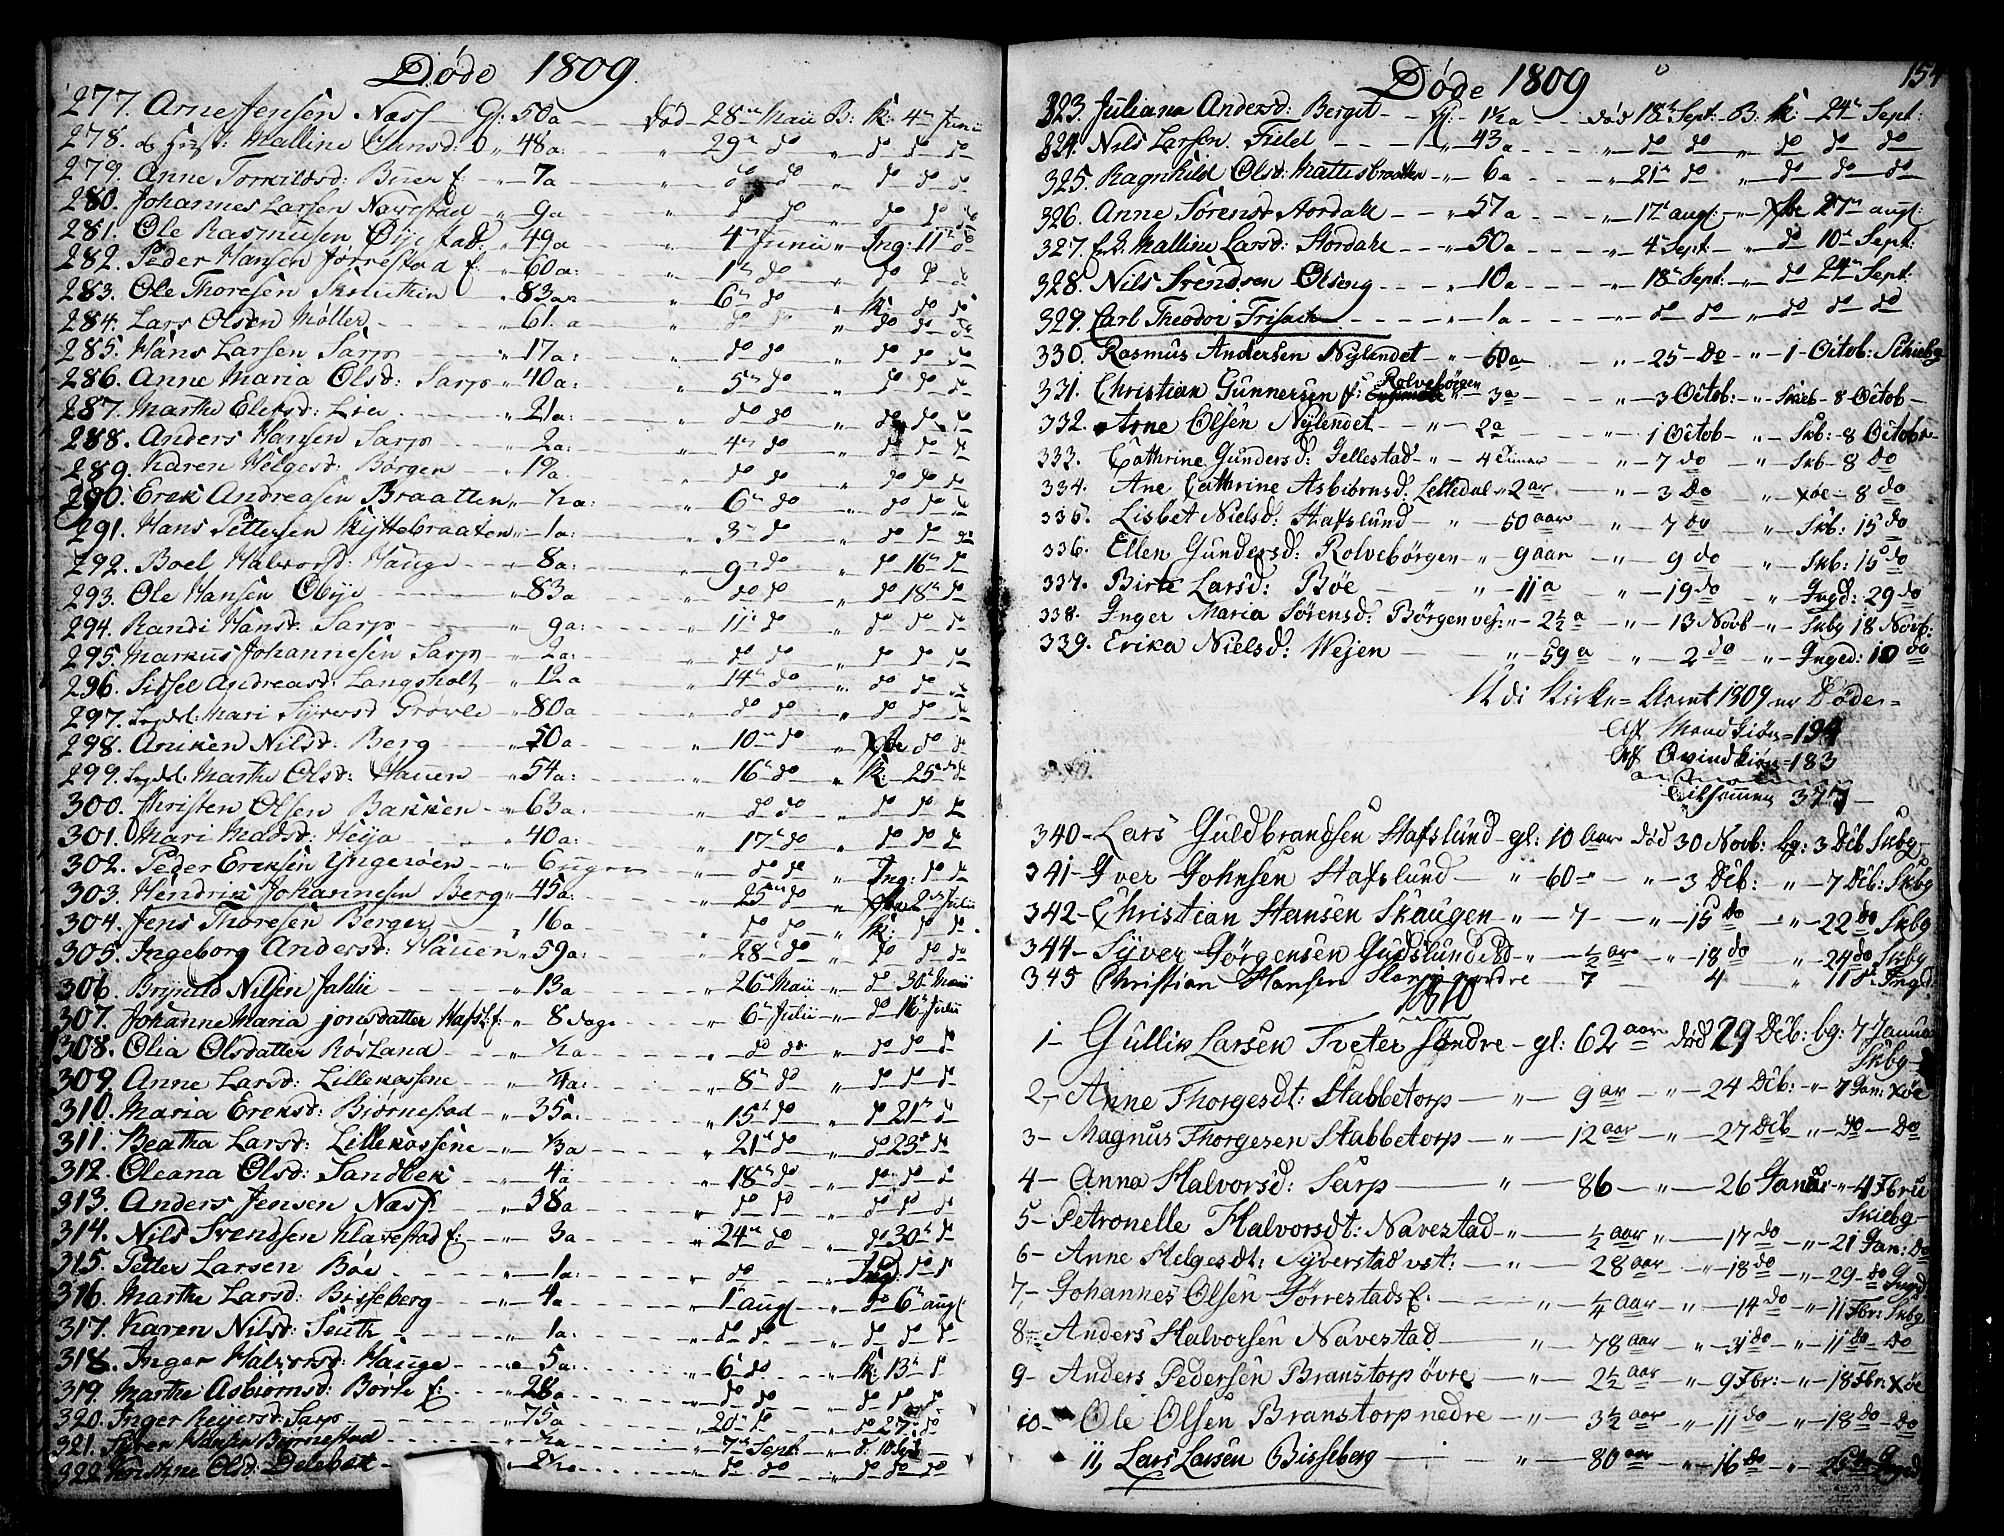 Døde 1809
277. Arne Jensen Næss Gl: 50a død 28de Maii B: K: 4de Junii
278. Malline 48a: 29de do do do do
279. Anne Torkildsd: 7a do do do do do
280. Johannes Larsen Navestad 9a do do do do do
281. Ole Rasmusen 49a 4de Junii Ing: 11te do
282. Peder Hansen Jørrestad f: 60a: 1te do do do do
283. Ole Thoresen 83a 6te do K: do do
284. Lars Olsen Møller 61. a do do do do do
285. Hans Larsen Sarp 17a: do do do do do
286. Anne Maria Olsd: Sarp 40a: 5te do do do do
287. Marthe Elefsd: Lia 21a: do do do do do
288. Anders Hansen Sarp 2a: 4de do do do do
289. Karen Helgesd: Børgen do do do do do
290. Erek Andreasen Braatten ½a: 6te do do do do
291. Hans Pettersen Skyttebraaten 1a: 3de do do do do
292. Boel Halvorsd: Hauge 8a: 9de do do 16de do
293. Ole Hansen 83a do do do 18de do
294. Randi Hansd: Sarp 9a: 11te do do do do
295. Markus Johannesen Sarp 2a: do do do do do
296. Sidsel Andreasd: Langsholt 12a 14de do do do do
297. Mari 80a do do do do do
298. Aniken Nilsd: Berg 50a 10de do do do
299. Marthe Olsd: Hauen 54a: 16de do K: 25de do
300. Christen Olsen Bakken 63a: do do do do do
301. Mari Madsd: Heija 40a: 17de do do do do
302. Peder Ereksen 6 uger do do Ing: do do
303. Hendrik Johannesen Berg 45a: 25de do 2den Julii
304. Jens Thoresen Berger 16a do do K: do do
305. Ingeborg Andersd: Hauen 59a: 28de do do do do
306. Nilsen 13a 26de Maii do 30te Maii
307. Johanne Maria Jonsdatter Hafsl: f: 8 dage 6te Julii do 16de Julii
308. Olia Olsdatter ½a do do do do do
309. Anne Larsd: ¼a: 8de do do do do
310. Maria Ereksd: Bjørnestad 35a: 15de do do 21de do
311. Beatha Larsd: ⅓a 21de do do 23de do
312. Oleana Olsd: Sandbek 4a 18de do do do do
313. Anders Jensen Næss 38a do do do do do
314. Nils Svendsen Klavestad f: 3a 24de do do 30te do
315. Petter Larsen Bøe 1a: do Ing: do do
316. Marthe Larsd: Bisseberg 4a 1te augl do 6te augl
317. Karen Nilsd: 1a: do do do do do
318. Inger Halvorsd: Hauge 5a: 6te do K: 13de do
319. Marthe Asbiørnsd: Børte f: 28a do do do do do
320. Inger Reijersd: Sarp 75a 20de do do 27de do
321. Hansen Bjørnestad ½a 7de Sept. do 10de Sept
322. Olsd: do do do do do
Døde 1809 154
323. Juliana Andersd: Berget Gl: 1½a død 18de Sept: B: K: 24de Sept:
324. Nils Larsen Field 43a do do do do do
325. Ragnhild Olsd: Mattisbraatten 6a 21de do do do do
326. Anne Sørensd Hordahl 57a 17de augl: 27de augl:
327. Malline Larsd: Hordahl 50a 4de Sept: do 10de Sept:
328. Nils Svendsen Olseng 10a 18de Sept: do 24de Sept:
329. Carl Theodor Frisach 1a do do do do do
330. Rasmus Andersen Nylendet 60a 25 do 1 Octob: Schieb
331. Christian Gunnersen f: Rolvebørgen 3a 3 Octob: Skieb 8 Octob
332. Arne Olsen Nylendet 2a 1 Octob Skb: 8 Octobr
333. Cathrine Gundersd: Jellestad 4 timer 7 do Skb 8 do
334. Ane Cathrine Asbiørnsd: Lilledal 2 ar 3 do Xøe 8 do
335. Lisbet Nielsd: Hafslund 50 aar 7 do Skb: 15 do
336. Ellen Gundersd: Rolvebørgen 9 aar 9 do Skb: 15 do
337. Birte Larsd: Bøe 11a 19 do Ingd: 29 do
338. Inger Maria Sørensd: Børgen vest: 2½a 13 Novb Skbg 18 Novb:
339. Erika Nielsd: Vejen 59a 2 do Inged: 10 do
Udi Kirke-Aaret 1809 er Døde
Af Mandkiøn 194
Af Qvindkiøn 183
Tilsammen 377
340 Lars Guldbrandsen Hafslund gl: 10 aar død 30 Novb: bg: 3 Dcb Skbg
341 Iver Johnsen Hafslund 60 3 Dcb: 7 Dcb: Skbg
342 Christian Hansen Skaugen 7 15 do 22 do Skbg
344 Syver Jørgensen Gudslund ½ aar 18 do 24 do Skbg
345 Christian Hansen nordre 7 4 11 do Ingd:
1810
1 Gullik Larsen Tveter søndre gl: 62 aar død 29 Dcb: bg: 7 Januar
Skbg
2 Anne Thorgesdt: Stabbetorp 9 ar 24 Dcb: 7 Jan: Xøe
3 Magnus Thorgesen Stabbetorp 12 aar 27 Dcb do do
4 Anna Halvorsd: Sarp 86 26 Januar 4 Fbru
Skiebg
5 Petronelle Halvorsdt: Navestad ½ aar 17 do 21 Jan: do
6 Anne Helgesdt: Syverstad vst: 28 aar 18 do 29 do Ingd
7 Johannes Olsen Jørrestads f. ¼ aar 14 do 11 Fbr: Skbg
8 Anders Halvorsen Navestad 78 aar 31 do 11 do do
9 Anders Pedersen Branstorp øvre 2½ aar 9 Fbr: 18 Fbr: Xøe
10 Ole Olsen Branstorp nedre 3½ aar 11 do 18 do do
11, Lars Larsen Bisseberg 80 aar 16 do 25 do Inged